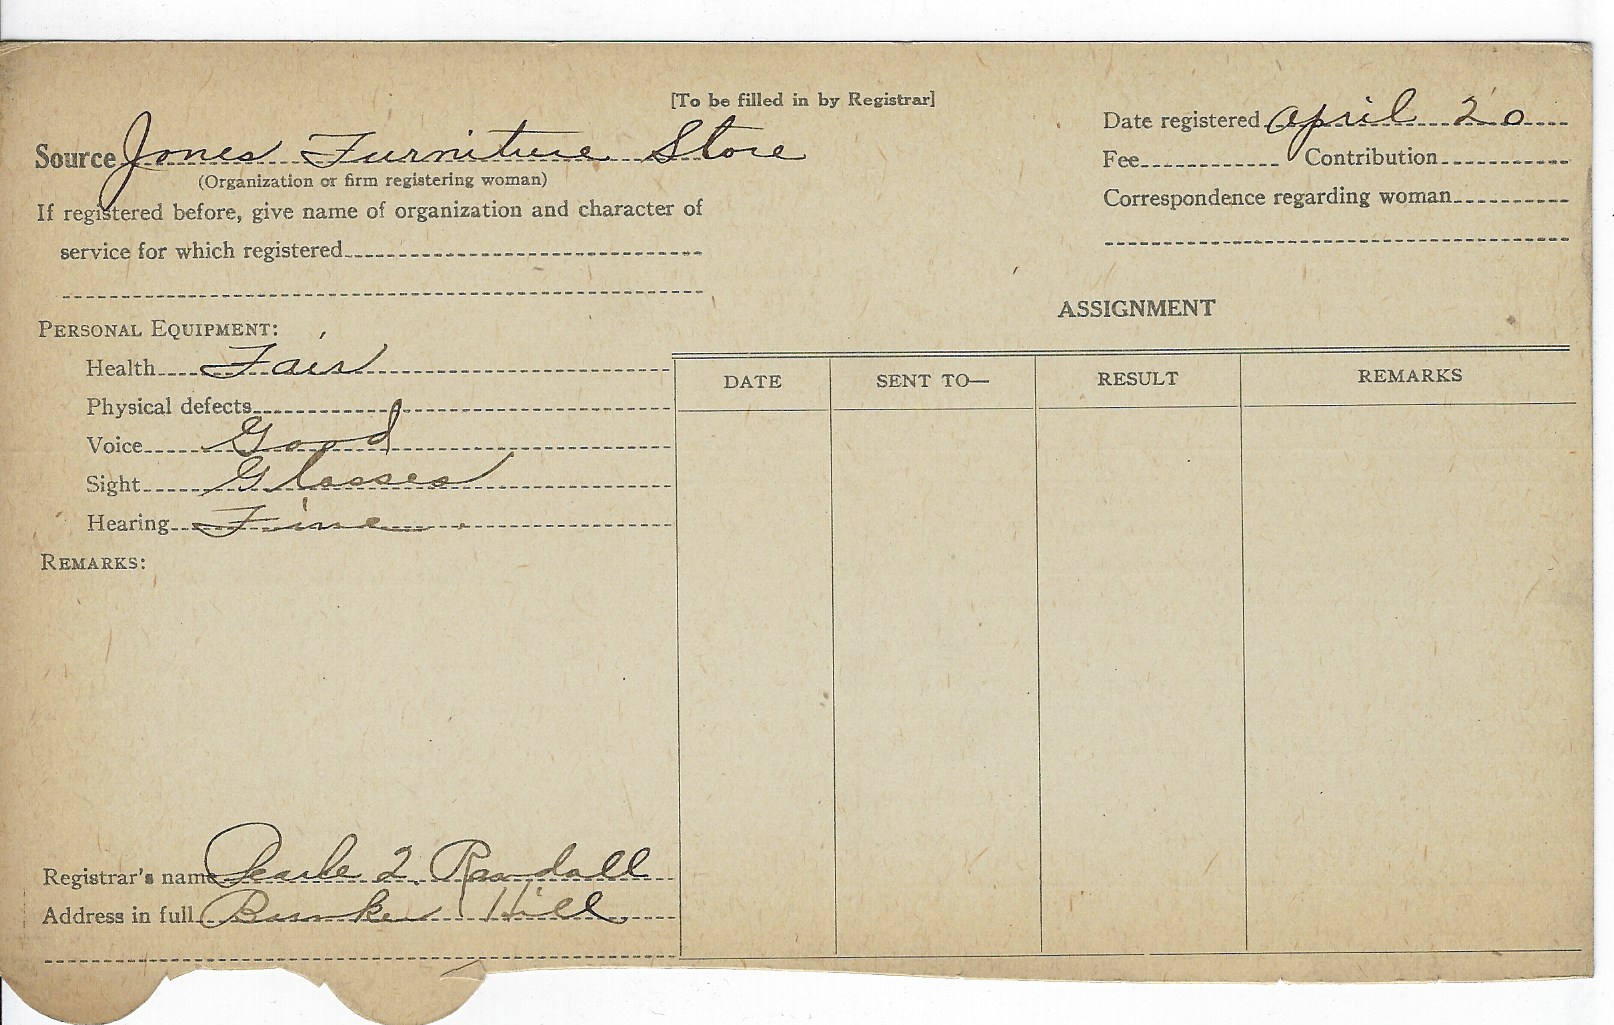 [To be filled in by Registrar]
Date registered April 20
Source Jones Furniture Store
(Organization or firm registering woman)
Fee Contribution
If registered before, give name of organization and character of
service for which registered
Correspondence regarding woman
ASSIGNMENT
PERSONAL EQUIPMENT:
Health Fair
Physical defects
Voice Good
Sight Glasses
Hearing Fine
REMARKS:
DATE SENT TO— RESULT REMARKS
Registrar's name Randall
Address in full Bunker Hill